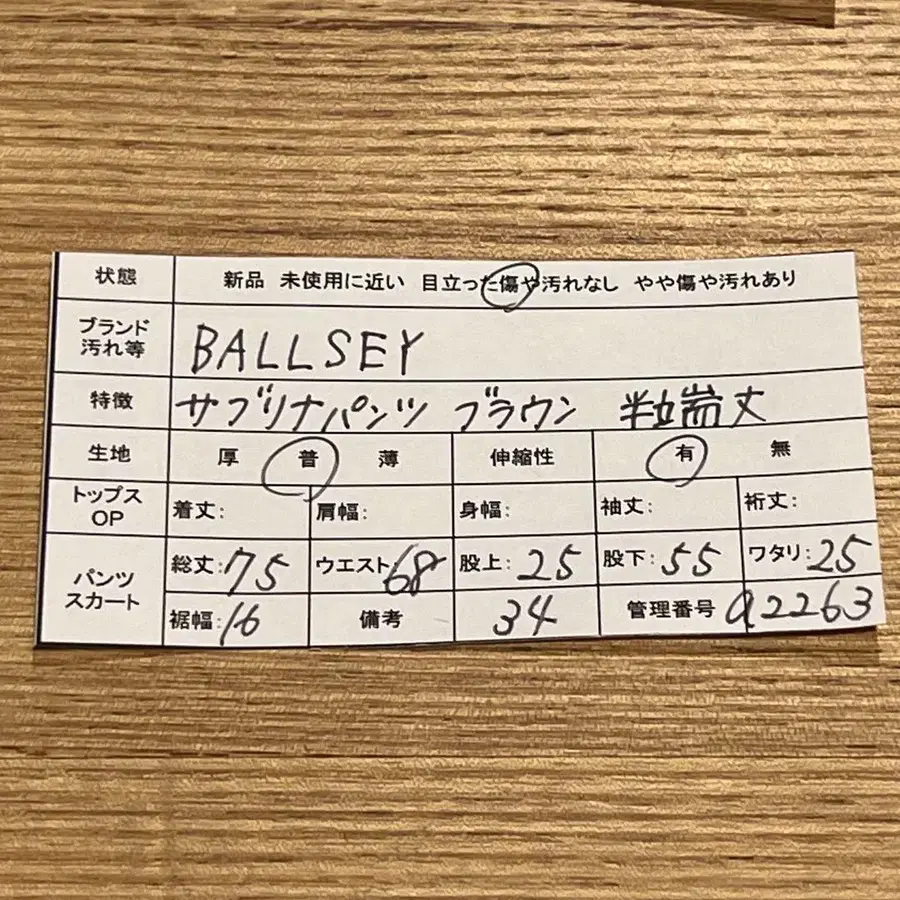 状態 新品 未使用に近い 目立った傷や汚れなし やや傷や汚れあり
ブランド
汚れ等 BALLSEY
特徴 サブリナパンツ ブラウン 半端丈
生地 厚 普 薄 伸縮性 有 無
トップス
OP 着丈: 肩幅: 身幅: 袖丈: 裄丈:
パンツ
スカート 総丈:75 ウエスト68 股上:25 股下:55 ワタリ:25
裾幅:16 備考 34 管理番号 a2263